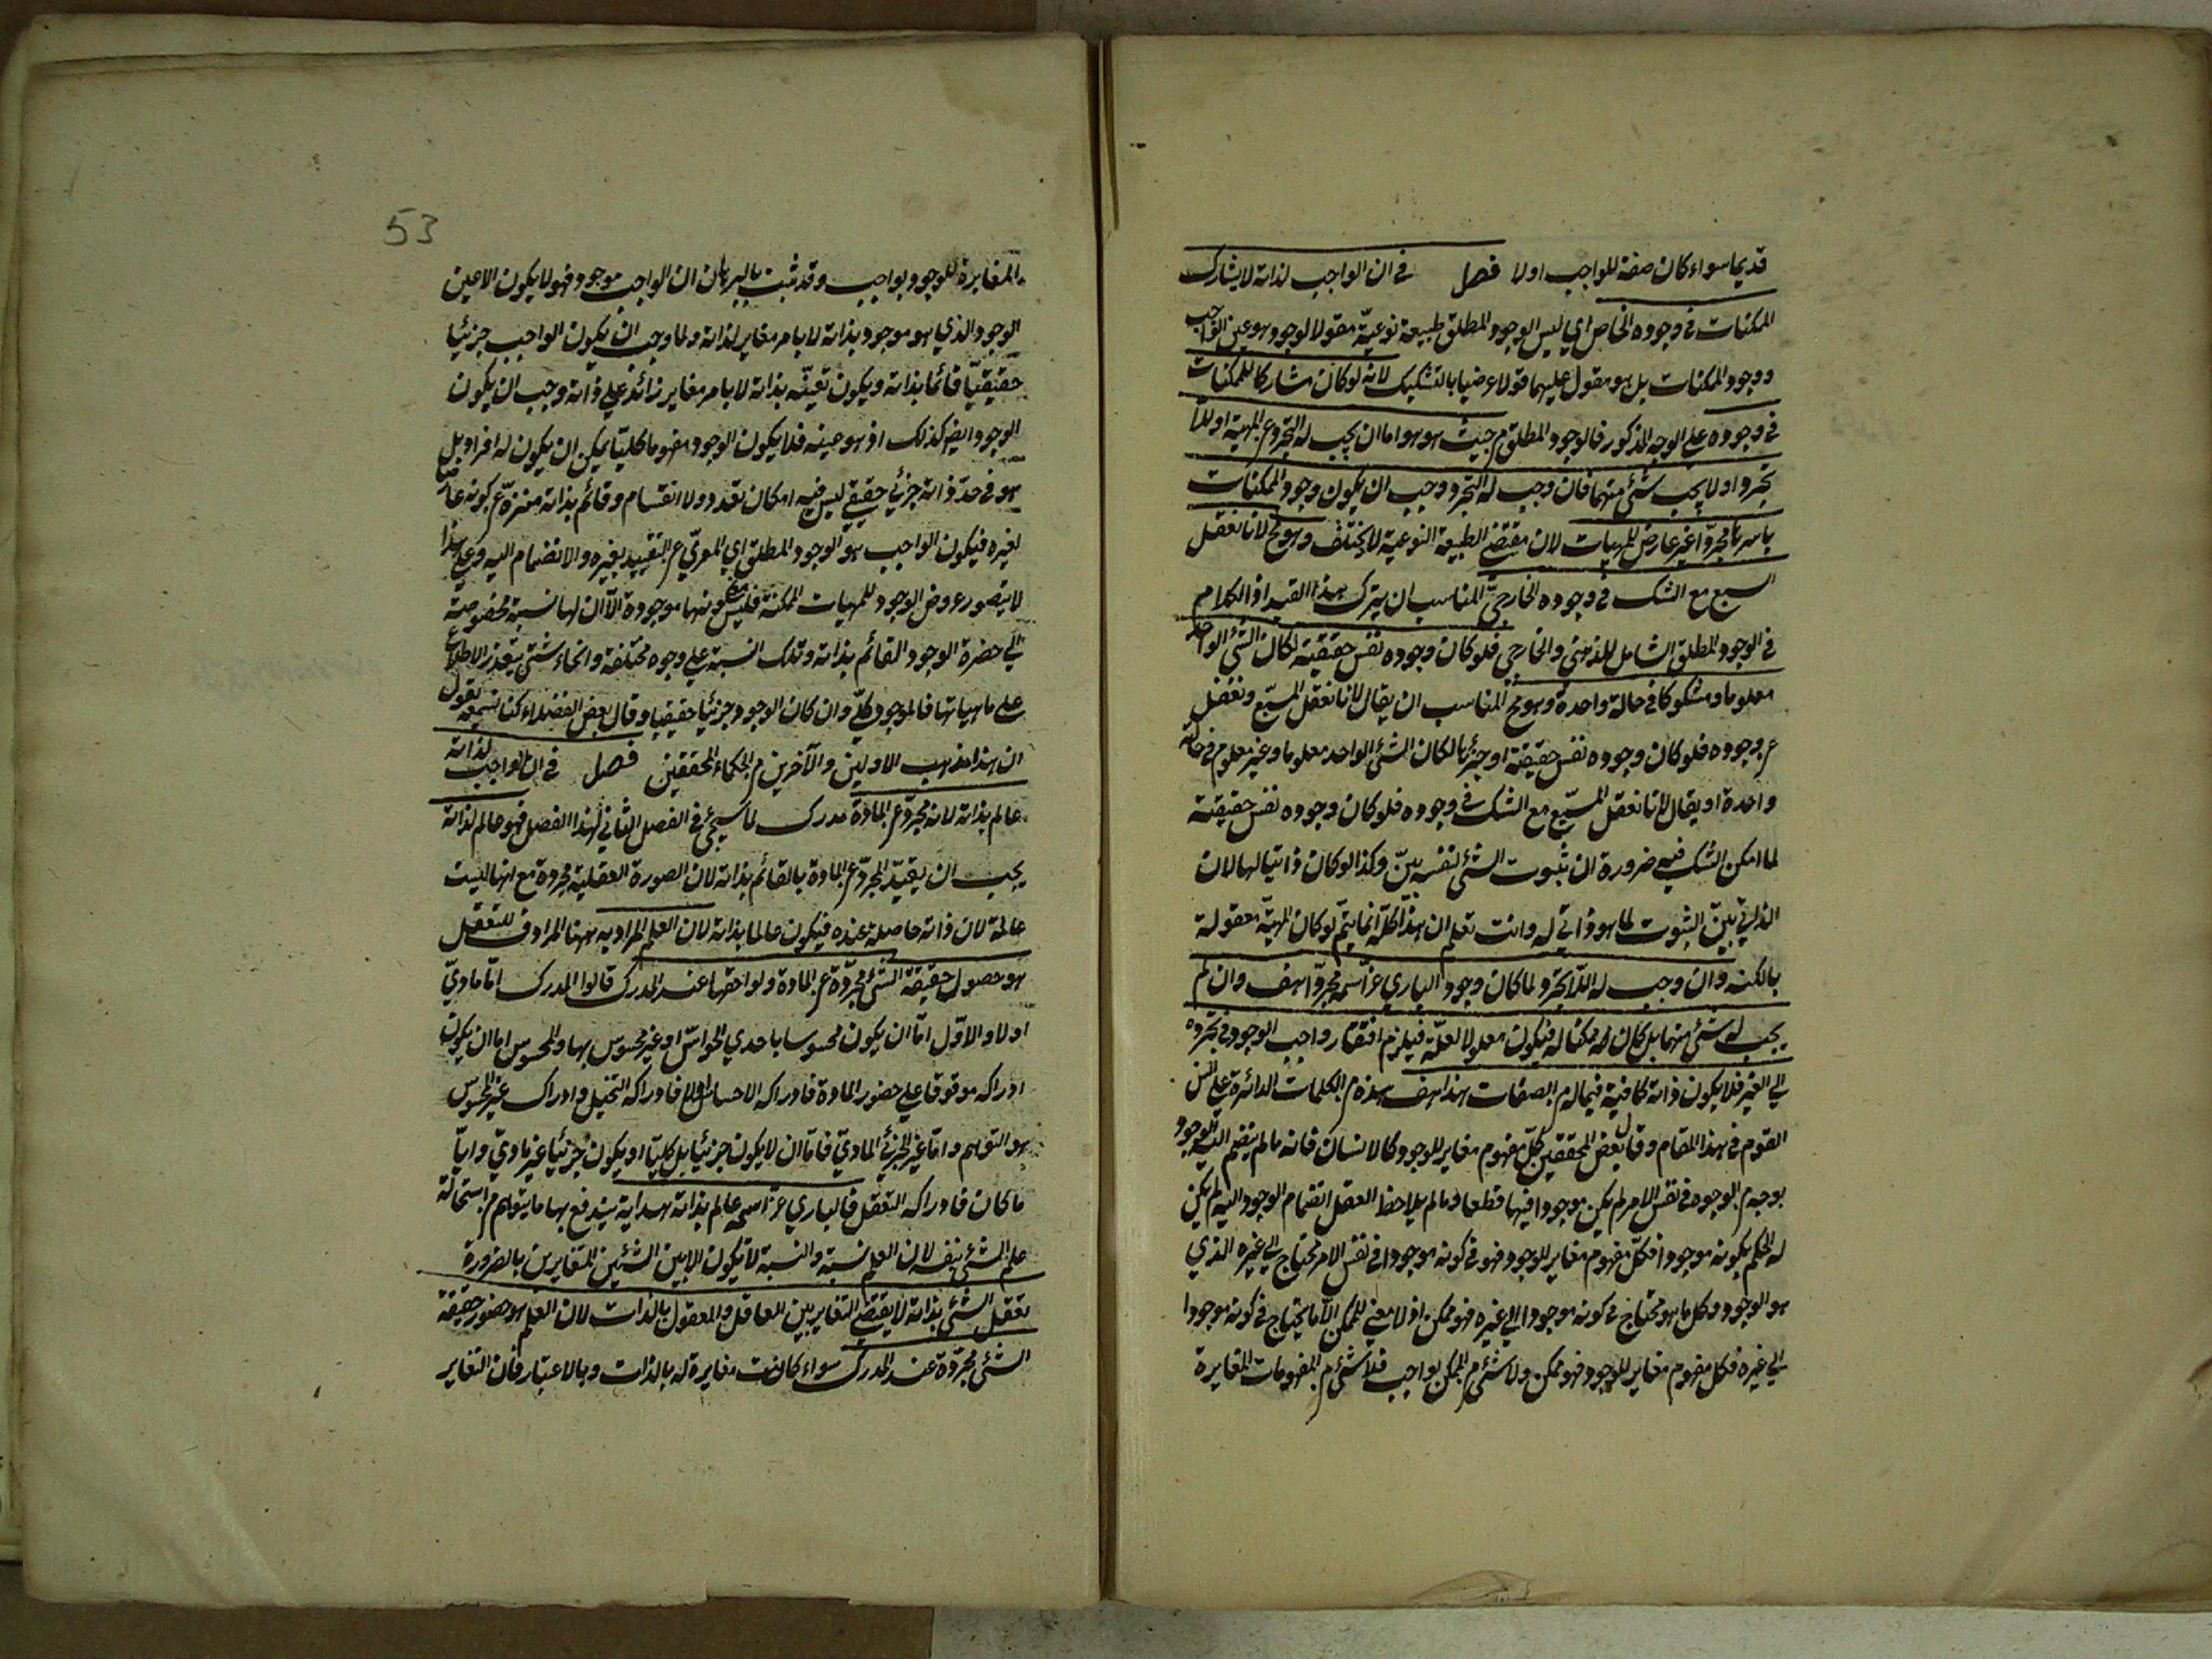 قديما سواء كان صفة للواجب اولا فصل في ان الواجب لذاته لا يشارك
الممكنات في وجوده الخاص اي ليس الوجود المطلق طبيعة نوعية مقولا لوجود هو عين الواجب
ووجود الممكنات بل هو مقول عليهما قولا عرضيا بالتشكيك لانه لو كان مشاركا للممكنات
في وجوده علي الوجه المذكور فالوجود المطلق من حيث هو هو اما ان يجب له التجرد عن المهية او اللا
تجرد او لا يجب شئ منهما فان وجب له التجرد وجب ان يكون وجود الممكنات
باسرها مجردا غير عارض للمهيات لان مقتضي الطبيعة النوعية لا يختلف وهو مح لانا نعقل
المسبع مع الشك في وجوده الخارجي المناسب ان يترك هذا القيد اذ الكلام
في الوجود المطلق الشامل للذهني والخارجي فلو كان وجوده نفس حقيقته لكان الشئ الواحد
معلوما ومشكوكا في حالة واحدة وهو مح المناسب ان يقال لانا نعقل المسبع ونغفل
عن وجوده فلو كان وجوده نفس حقيقته او جزئها لكان الشئ الواحد معلوما وغير معلوم في حالة
واحدة او يقال لانا نعقل المسبع مع الشك في وجوده فلو كان وجوده نفس حقيقته
لما امكن الشك فيه ضرورة ان ثبوت الشئ لنفسه بين وكذا لو كان ذاتيا لها لان
الذاتي بين الثبوت لما هو ذاتي له وانت تعلم ان هذا كله انما يتم لو كان المهية معقولة
بالكنه وان وجب له اللاتجرد لما كان وجود الباري عز اسمه مجردا هف وان لم
يجب له شئ منهما بل كان ممكنا له فيكون معلولا لعلة فيلزم افتقار واجب الوجود في تجرده
الي الغير فلا يكون ذاته كافية فيما له من الصفات هذا هف هذه من الكلمات الدائرة علي السن
القوم في هذا المقام وقال بعض المحققين كل مفهوم مغاير للوجود كالانسان فانه ما لم ينضم اليه الوجود
بوجه من الوجوه في نفس الامر لم يكن موجودا فيها قطعا وما لم يلاحظ العقل انضمام الوجود اليه لم يكن
له الحكم بكونه موجودا فكل مفهوم مغاير للوجود فهو في كونه موجودا في نفس الامر محتاج الي غيره الذي
هو الوجود وكل ما هو محتاج في كونه موجودا الي غيره فهو ممكن اذ لا معني للممكن الا ما يحتاج في كونه موجودا
الي غيره فكل مفهوم مغاير للوجود فهو ممكن ولا شئ من الممكن بواجب فلا شئ من المفهومات المغايرة
53
المغايرة للوجود بواجب وقد ثبت بالبرهان ان الواجب موجود فهو لا يكون الا عين
الوجود الذي هو موجود بذاته لا بامر مغاير لذاته ولما وجب ان يكون الواجب جزئيا
حقيقيا قائما بذاته ويكون تعينه بذاته لا بامر مغاير زائد علي ذاته وجب ان يكون
الوجود ايضا كذلك اذ هو عينه فلا يكون الوجود مفهوما كليا يمكن ان يكون له افراد بل
هو في حد ذاته جزئي حقيقي ليس فيه امكان تعدد ولا انقسام وقائم بذاته منزه عن كونه عارضا
لغيره فيكون الواجب هو الوجود المطلق اي المعري عن التقييد بغيره والانضمام اليه وعلي هذا
لا يتصور عروض الوجود للمهيات الممكنة فليس معني كونها موجودة الا ان لها نسبة مخصوصة
الي حضرة الوجود القائم بذاته وتلك النسبة علي وجوه مختلفة وانحاء شتي يتعذر الاطلاع
علي ماهياتها فالموجود كلي وان كان الوجود جزئيا حقيقيا وقال بعض الفضلاء كنا نسمعه يقول
ان هذا مذهب الاولين والآخرين من الحكماء المحققين فصل في ان الواجب لذاته
عالم بذاته لانه مجرد عن المادة مدرك لما سيجئ في الفصل الثاني لهذا الفصل فهو عالم لذاته
يجب ان يقيد المجرد عن المادة بالقائم بذاته لان الصورة العقلية مجردة مع انها ليست
عالمة لان ذاته حاصلة عنده فيكون عالما بذاته لان العلم المراد به ههنا المرادف للتعقل
هو حصول حقيقة الشئ مجردة عن المادة ولواحقها عند المدرك قالوا المدرك اما مادي
اولا والاول اما ان يكون محسوسا باحدي الحواس او غير محسوس بها والمحسوس اما ان يكون
ادراكه موقوفا علي حضور المادة فادراكه الاحساس اولا فادراكه التخيل وادراك غير المحسوس
هو التوهم واما غير الجزئي المادي فاما ان لا يكون جزئيا بل كليا او يكون جزئيا غير مادي وايا
ما كان فادراكه التعقل فالباري عز اسمه عالم بذاته هداية يندفع بها ما يتوهم من استحالة
علم الشئ بنفسه لان العلم نسبة والنسبة لا تكون الا بين الشئين المتغايرين بالضرورة
تعقل الشئ بذاته لا يقتضي التغاير بين العاقل والمعقول بالذات لان العلم هو حضور حقيقة
الشئ مجردة عند المدرك سواء كانت مغايرة له بالذات وبالاعتبار فان التغاير